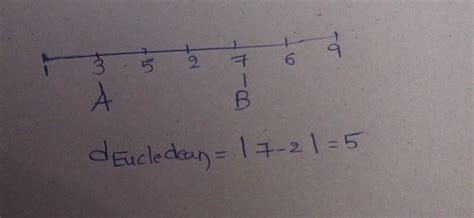 1 3 5 2 7 6 9
A B
dEucledean = |7-2| = 5